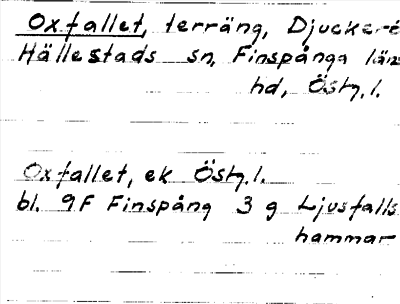 Oxfallet, terräng, Djucker-
Hällestads sn, Finspånga län
hd, Östg. l.
Oxfallet, ek Östg. l.
bl. 9F Finspång 3 g Ljusfalls
hammar